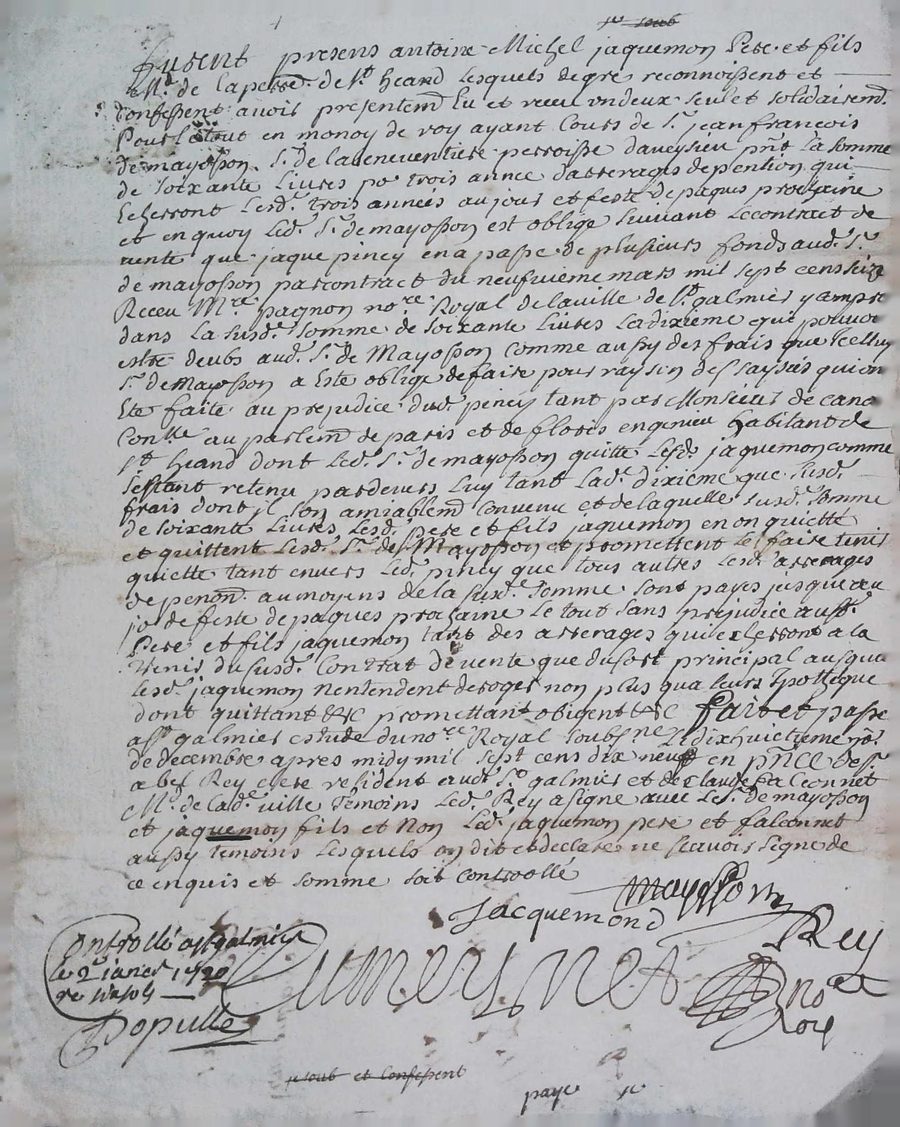 furent presens antoine Michel jaquemon Pere et fils
Md. de la perr. de st. heand lesquels de gre reconnoissent et
Confessent avoir presentemt. Eu et receu un deux seul et solidairemt.
Pour le tout en monoy de roy ayant Cours de Sr. jean françois
de mayosson Sr. de la perroisse daveysieu pnt. la somme
de soixante livres po trois annee daserages de pention qui
Echerront lesd. trois années au jour et feste de paques prochaine
et en quoy led. Sr. de mayosson est oblige suivant le contract de
vente que jaque piney en a passe de plusieurs fonds aud. Sr.
de mayosson par contract du neufvieme mars mil sept cens seize
Receu Mre. pagnon nore. Royal de la ville de st. galmier y ampre
dans la susd. somme de soixante livres la dixieme qui pouvoi
estre deubs aud. Sr. de Mayosson comme aussy des frais que Icelluy
Sr. de mayosson a Este oblige de faire pour raison des saysies qui on
Este faite au prejudice dud. piney tant par Monsieur de
Conller au parlemt. de paris et de flores engenieu habitant de
st heand dont led. Sr. de mayosson quitte lesd. jaquemon comme
sestant retenu par devers luy tant lad. dixieme que susd.
frais dont jl son amiablemt. Convenu et de laquelle susd. somme
de soixante livres lesd. Pere et fils jaquemon en on quitté
et quittent lesd. Sr. de Mayosson et promettent le faire tenir
quitte tant envers led. piney que tous autres lesd. arrerages
de au moyens de la susd. somme sont payes jusqu au
jor de feste de paques prochaine le tout sans prejudice ausd.
Pere et fils jaquemon tant des arrerages qui echerront a la
venir du susd. Contrat de vente que du sort principal auqua
lesd. jaquemon nentendent deroger non plus qua leurs Ypotteque
dont quittant &c promettant obligent &c fait et passe
a st. galmier estude du nore. Royal soubsne. le dix huictieme jor.
de decembre apres midy mil sept cens dix neuf en pnce de Sr.
abel Rey clere resident aud. st. galmier et de Claude faleonnet
Md. de lad. ville temoins led. Rey a signe avec led. Sr. de mayosson
et jaquemon fils et Non led. jaquemon pere et falconnet
aussy temoins lesquels on dit et declare ne scavoir signe de
ce enquis et somme soit controollé
Mayosson
Jacquemond
Rey
Controllé a st galmier
le 2e janer. 1720
re
Populle
not
Roy
et Confessent
paye